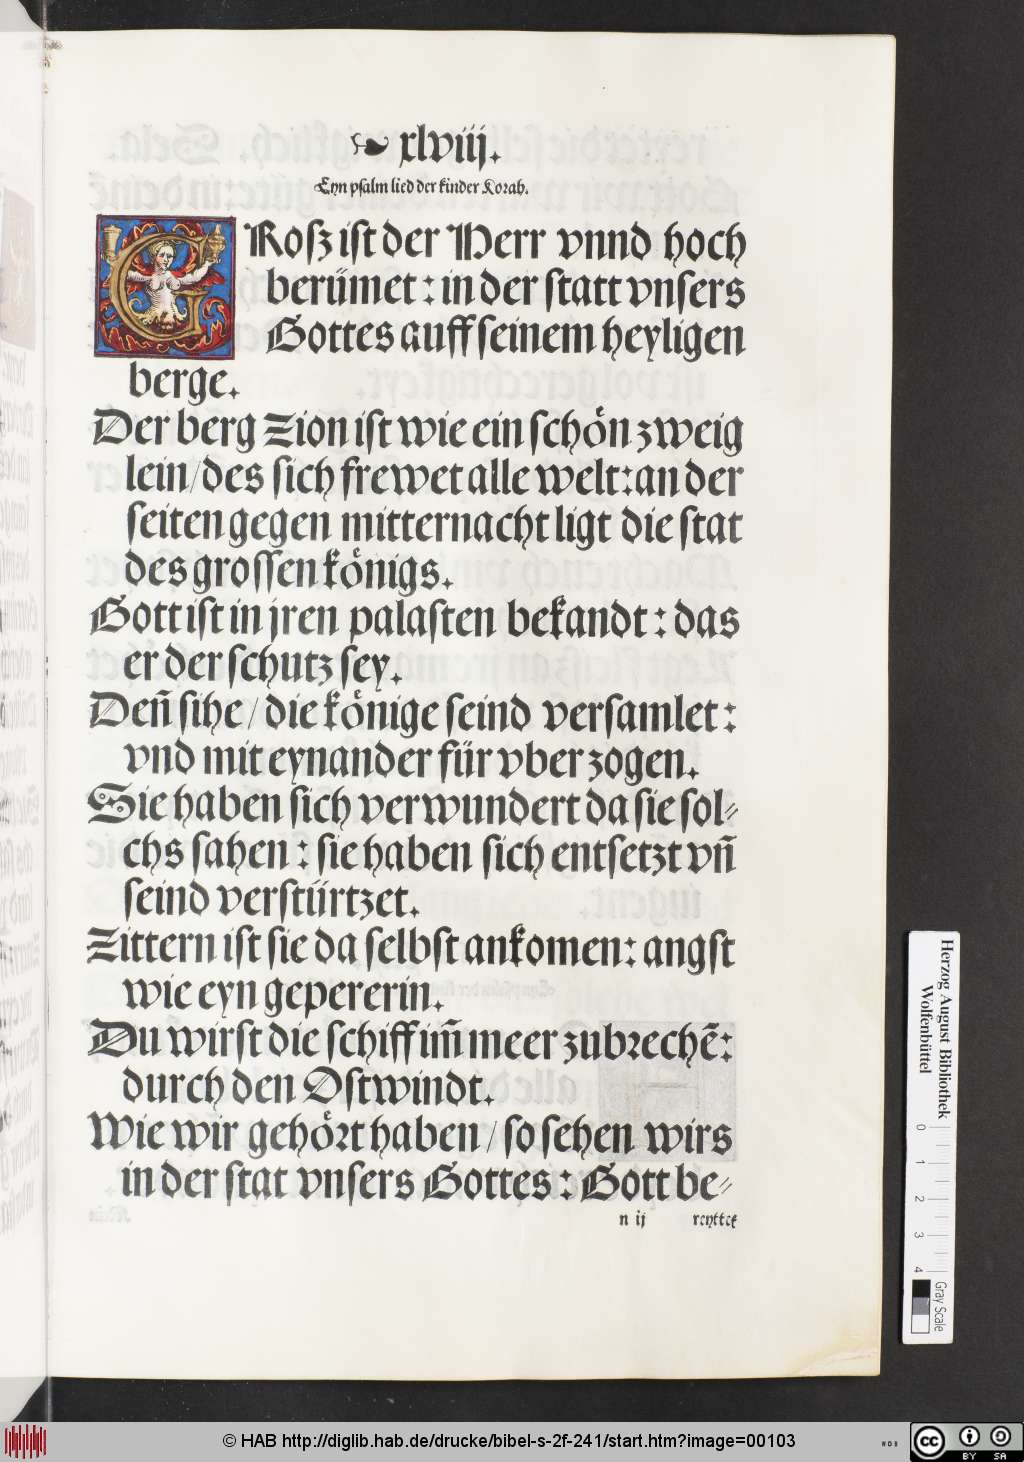 ❧ xlviij.
Eyn psalm lied der kinder Korah.
GRoſz iſt der Herr vnnd hoch
berümet : in der ſtatt vnſers
Gottes auff ſeinem heyligen
berge.
Der berg Zion iſt wie ein ſchoͤn zweig
lein / des ſich frewet alle welt : an der
ſeiten gegen mitternacht ligt die ſtat
des groſſen koͤnigs.
Gott iſt in jren palaſten bekandt : das
er der ſchutz ſey.
Deñ ſihe / die koͤnige ſeind verſamlet :
vnd mit eynander für vber zogen.
Sie haben ſich verwundert da sie ſol⸗
chs ſahen : ſie haben ſich entſetzt vñ
ſeind verſtürtzet.
Zittern iſt ſie da ſelbſt ankomen : angſt
wie eyn gepererin.
Du wirſt die ſchiff im̃ meer zubꝛechẽ :
durch den Oſtwindt.
Wie wir gehoͤꝛt haben / ſo ſehen wirs
in der ſtat vnſers Gottes : Gott be⸗
n ij reyttet
Herzog August Bibliothek
Wolfenbüttel
0 1 2 3 4
Gray Scale
© HAB http://diglib.hab.de/drucke/bibel-s-2f-241/start.htm?image=00103
WDB
cc BY SA